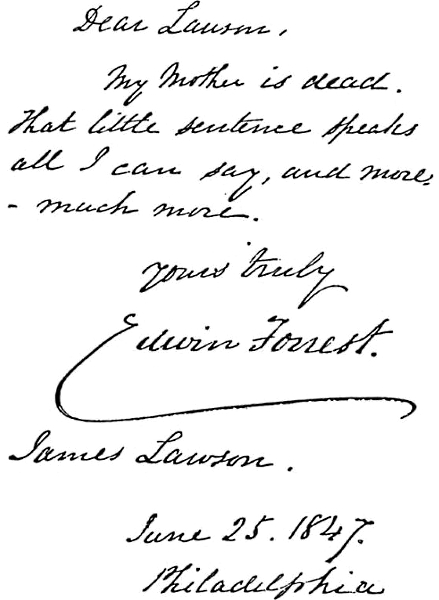 Dear Lawson,
My Mother is dead.
That little sentence speaks
all I can say, and more,
- much more.
yours truly
Edwin Forrest.
James Lawson.
June 25. 1847.
Philadelphia